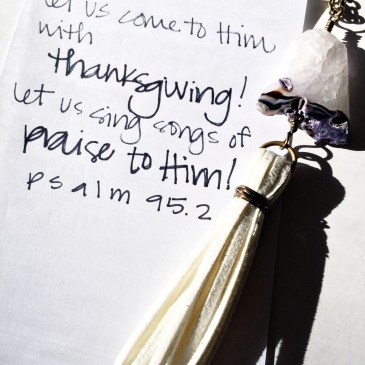 let us come to Him
with
thanksgiving!
let us sing songs of
praise to Him!
psalm 95.2